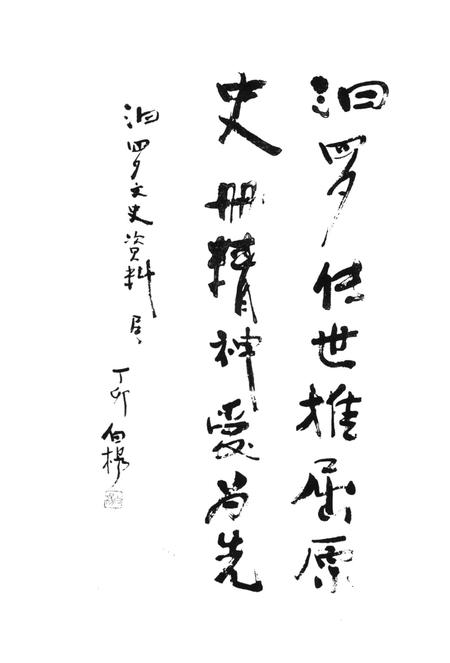 汨罗传世推屈原
史册精神爱为先
汨罗文史资料
丁卯 白杨